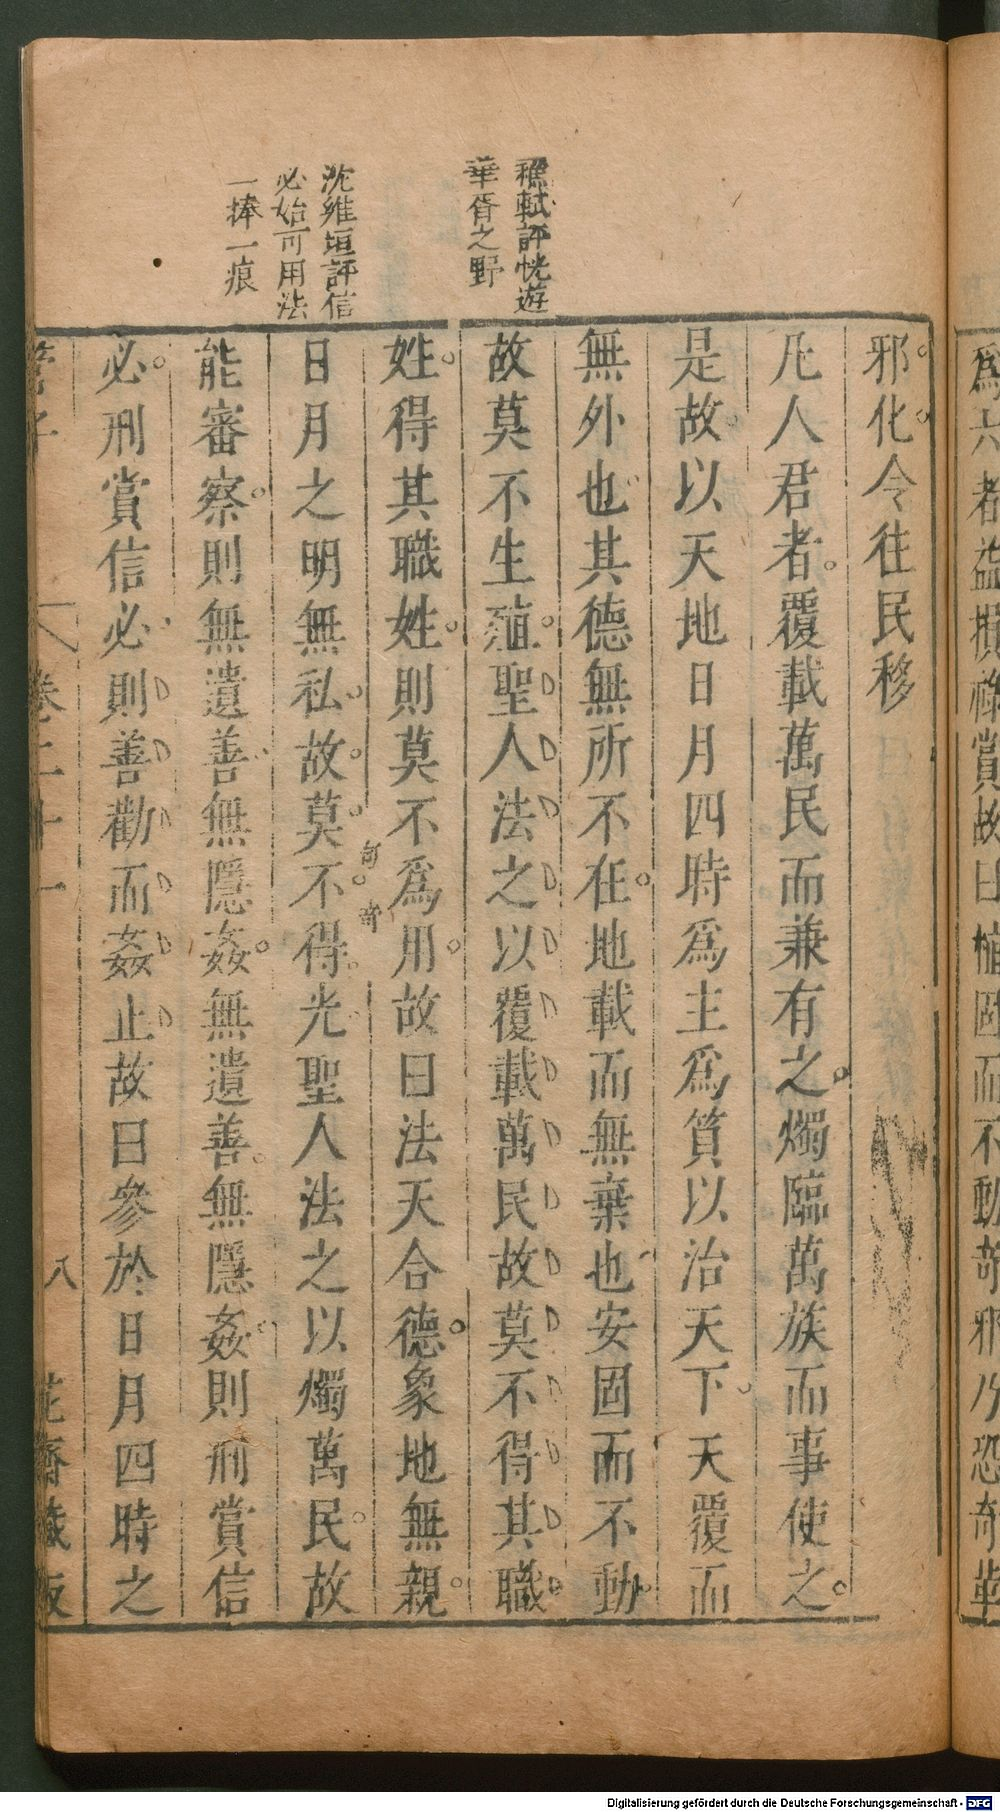 爲六者益損祿賞故曰植固而不動奇邪乃恐奇革
邪化令往民移
凡人君者覆載萬民而兼有之燭臨萬族而事使之
是故以天地日月四時爲主爲質以治天下天覆而
無外也其德無所不在地載而無棄也安固而不動
故莫不生殖聖人法之以覆載萬民故莫不得其職
姓得其職姓則莫不爲用故曰法天合德象地無親
日月之明無私故莫不得光聖人法之以燭萬民故
能審察則無遺善無隱姦無遺善無隱姦則刑賞信
必刑賞信必則善勸而姦止故曰參於日月四時之
管子
卷二十一
八
花齋藏板
穆軾評恍遊
華胥之野
沈維垣評信
必始可用法
一捧一痕
Digitalisierung gefördert durch die Deutsche Forschungsgemeinschaft - DFG